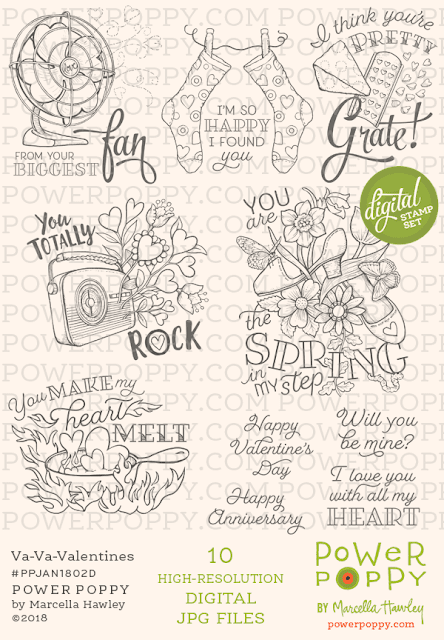 POWERPOPPY.COM
FROM YOUR
BIGGEST fan
I'M SO
HAPPY
I FOUND
you
I think you're
PRETTY
Grate!
You
TOTALLY
ROCK
YOU
are
the
SPRING
in
MY step
digital
STAMP
SET
You MAKE my
heart
MELT
Happy
Valentine's
Day
Happy
Anniversary
Will you
be mine?
I love you
with all my
HEART
Va-Va-Valentines
#PPJAN1802D
POWER POPPY
by Marcella Hawley
©2018
10
HIGH-RESOLUTION
DIGITAL
JPG FILES
POWER
POPPY
BY Marcella Hawley
powerpoppy.com